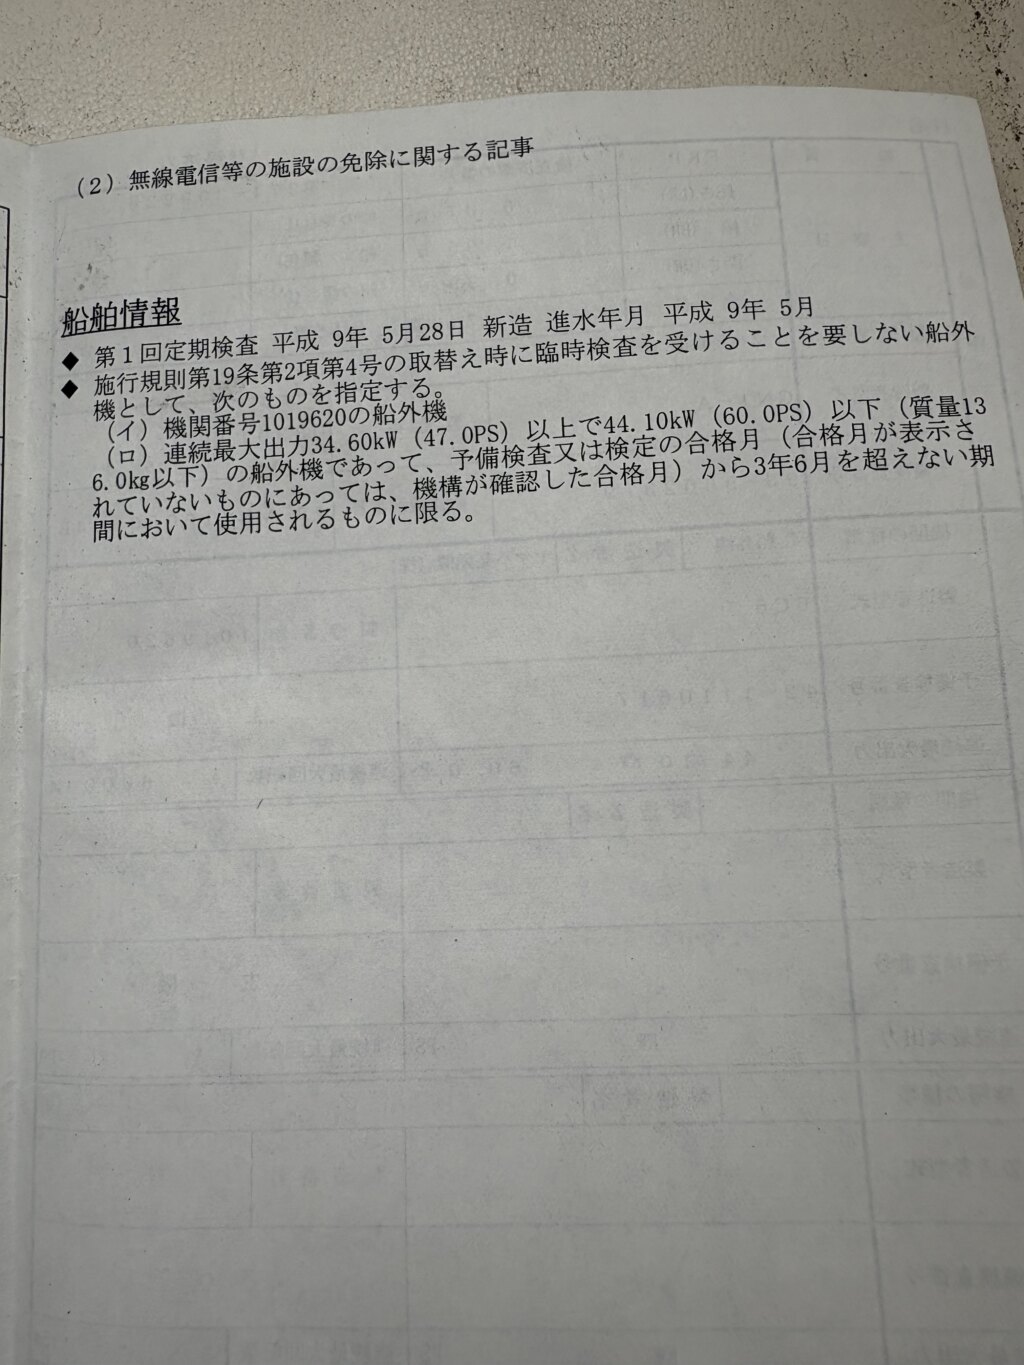 (2) 無線電信等の施設の免除に関する記事
船舶情報
◆ 第1回定期検査 平成 9年 5月28日 新造 進水年月 平成 9年 5月
◆ 施行規則第19条第2項第4号の取替え時に臨時検査を受けることを要しない船外
機として、次のものを指定する。
(イ) 機関番号1019620の船外機
(ロ) 連続最大出力34.60kW (47.0PS) 以上で44.10kW (60.0PS) 以下 (質量13
6.0kg以下) の船外機であって、予備検査又は検定の合格月 (合格月が表示さ
れていないものにあっては、機構が確認した合格月) から3年6月を超えない期
間において使用されるものに限る。